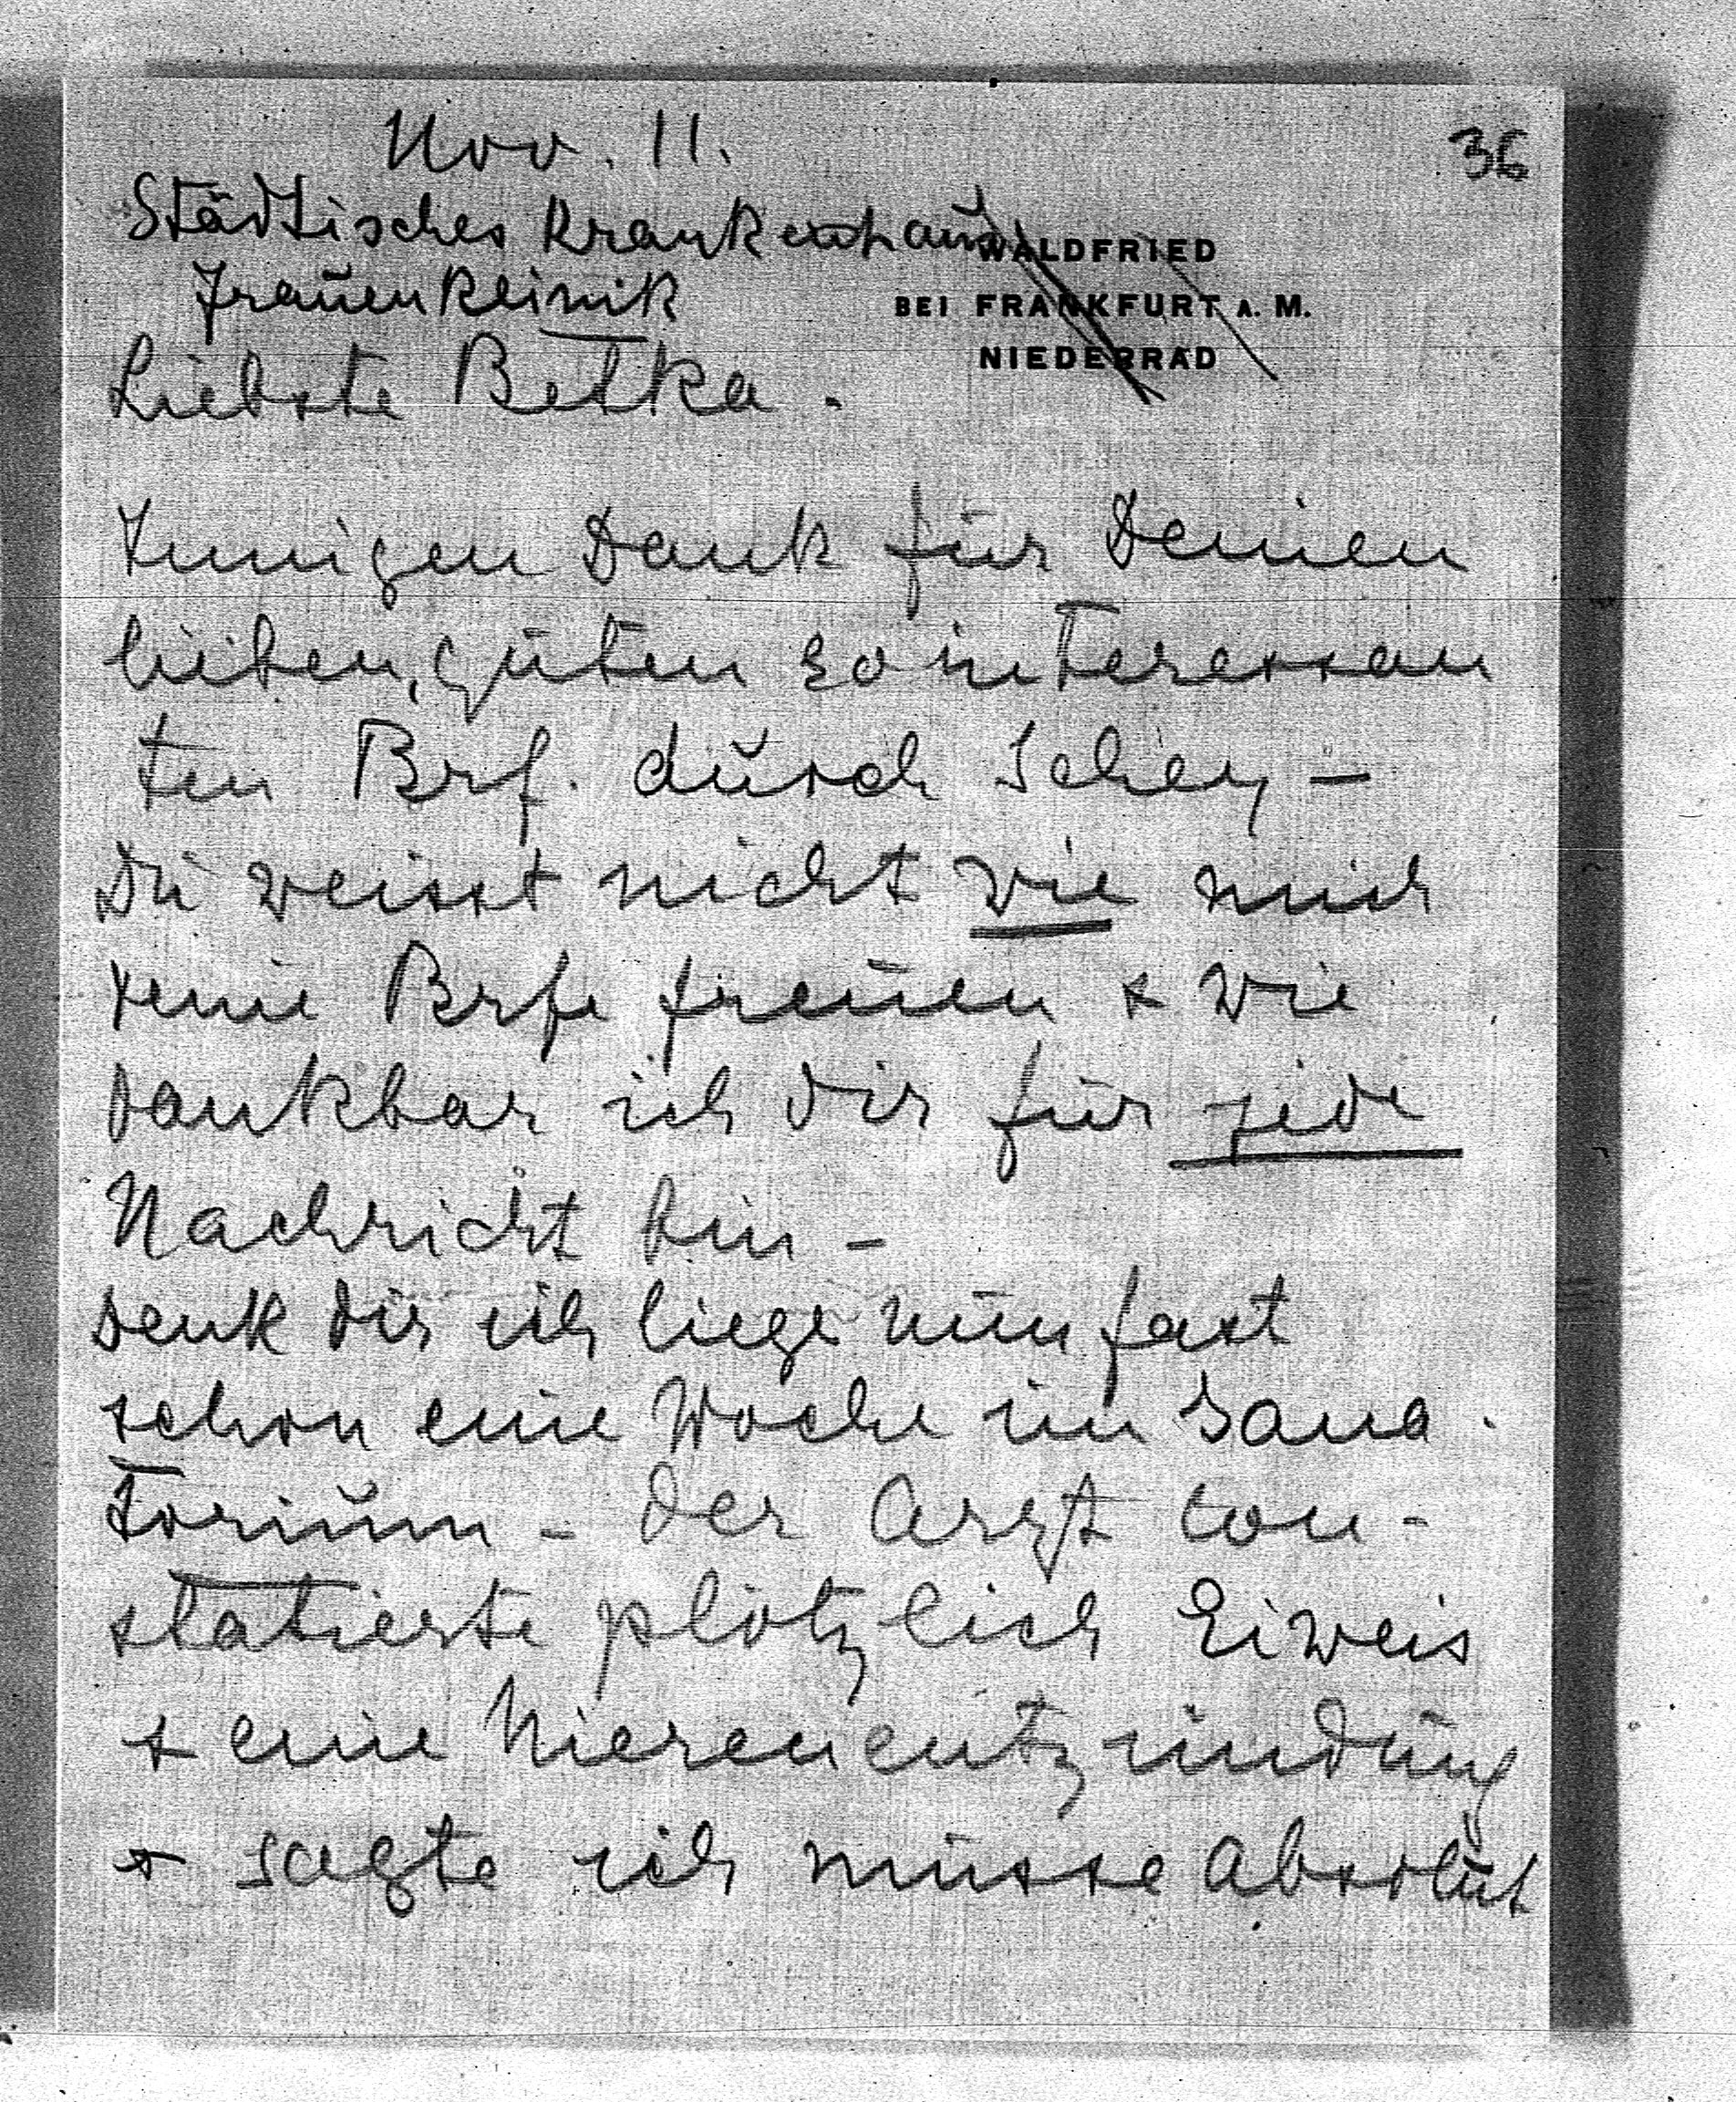 Nov. 11.
36
Städtisches Krankenhaus
Frauenklinik
WALDFRIED
BEI FRANKFURT A. M.
NIEDERRAD
Liebste Betka.
Innigen Dank für Deinen
lieben, guten so interessan
ten Brf. durch Schey –
Du weisst nicht wie mich
Deine Brfe freuen & wie
dankbar ich dir für jede
Nachricht bin –
Denk dir ich liege nun fast
schon eine Woche im Sana-
torium – der Arzt con-
statierte plötzlich Eiweis
& eine Nierenentzündung
& sagte ich müsse absolut